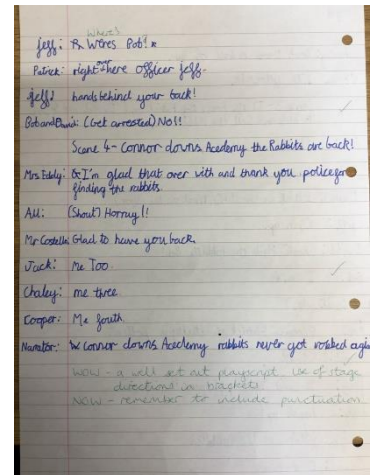 Where's
jeff: R Weres Bob! x
Patrick: right there officer jeff.
jeff: hands behind your back!
Bob and David: (Get arrested) No!!
Scene 4- Connor downs Academy the Rabbits are back!
Mrs Eddy: I'm glad that over with and thank you police for
finding the rabbits
All: (Shout) Horray!!
Mr Costello: Glad to have you back.
Jack: Me Too.
Chaley: me three
Cooper: Me fouth.
Narrator: Connor downs Academy rabbits never got robbed agin
WOW - a well set out playscript. Use of stage
directions in brackets
NOW - remember to include punctuation